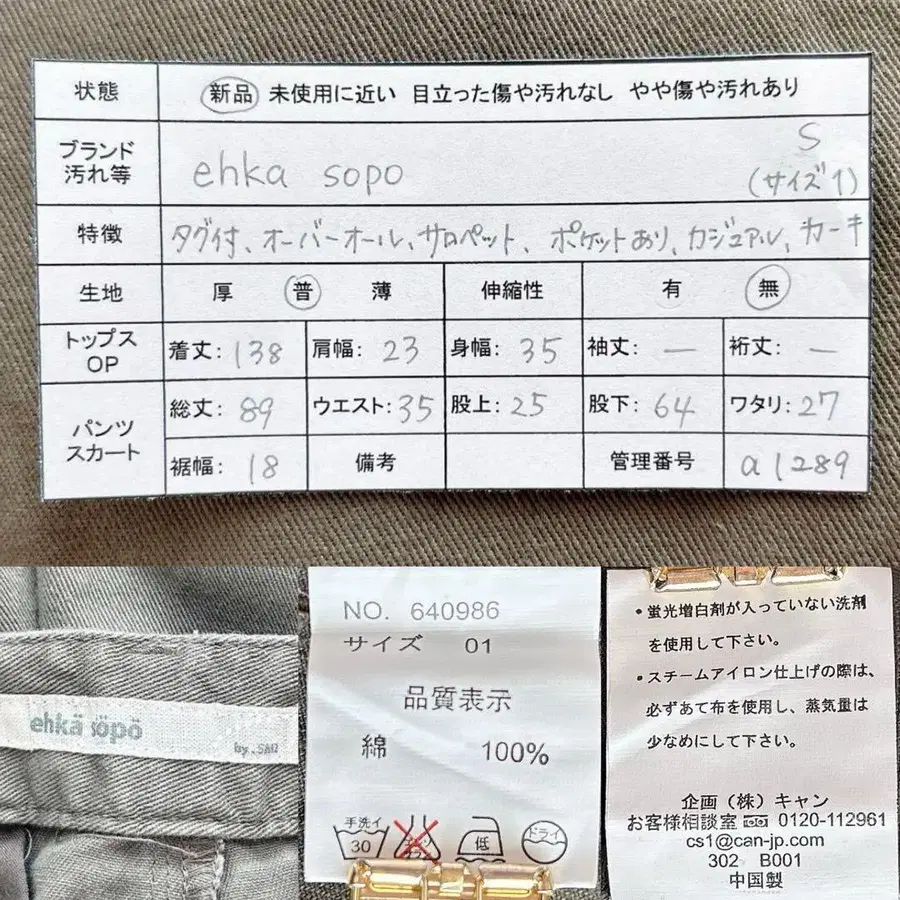 状態 新品 未使用に近い 目立った傷や汚れなし やや傷や汚れあり
ブランド
汚れ等 ehka sopo S
(サイズ1)
特徴 タグ付、オーバーオール、サロペット、ポケットあり、カジュアル、カーキ
生地 厚 普 薄 伸縮性 有 無
トップス
OP 着丈: 138 肩幅: 23 身幅: 35 袖丈: — 裄丈: —
パンツ
スカート 総丈: 89 ウエスト: 35 股上: 25 股下: 64 ワタリ: 27
裾幅: 18 備考 管理番号 a1289
ehkä söpö
by.
NO. 640986
サイズ 01
品質表示
綿 100%
手洗イ
30
低
ドライ
・蛍光増白剤が入っていない洗剤
を使用して下さい。
・スチームアイロン仕上げの際は、
必ずあて布を使用し、蒸気量は
少なめにして下さい。
企画(株)キャン
お客様相談室 0120-112961
cs1@can-jp.com
302 B001
中国製